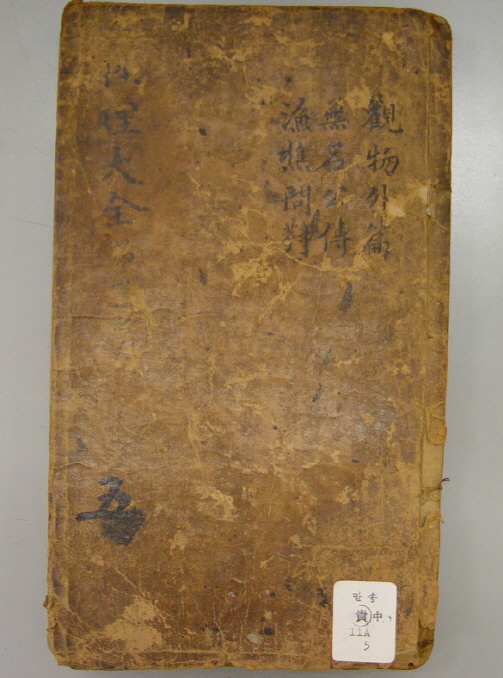 觀物外篇
無名公傳
漁樵問對
性理大全
五
만송
貴 中
11A
5